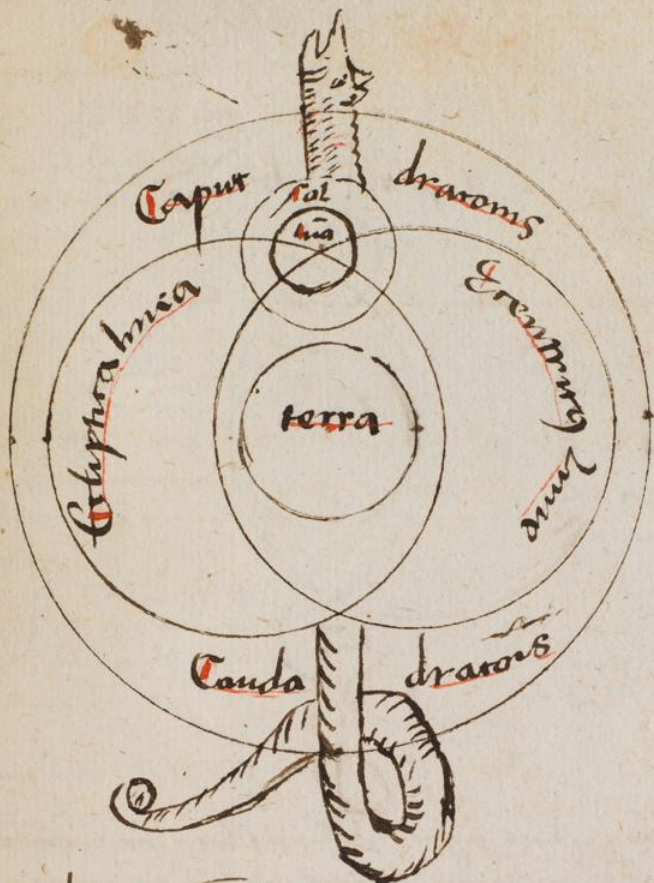 Caput draconis
Sol
lūa
Ecliptica linea
Ecentricus lune
terra
Cauda dracōis